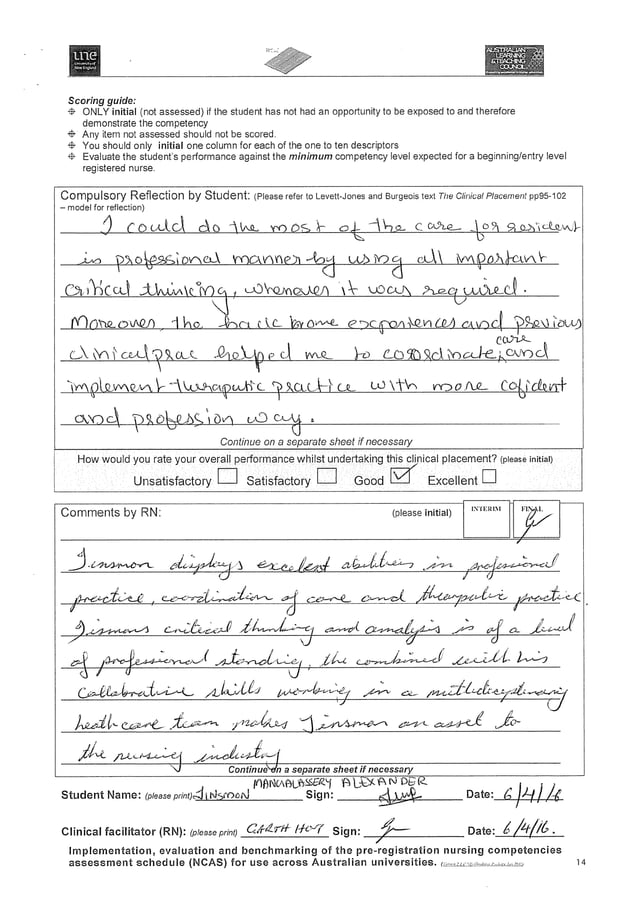 une
University of
New England
AUSTRALIAN
LEARNING
&TEACHING
COUNCIL
Scoring guide:
ONLY initial (not assessed) if the student has not had an opportunity to be exposed to and therefore
demonstrate the competency
Any item not assessed should not be scored.
You should only initial one column for each of the one to ten descriptors
Evaluate the student's performance against the minimum competency level expected for a beginning/entry level
registered nurse.
Compulsory Reflection by Student: (Please refer to Levett-Jones and Burgeois text The Clinical Placement pp95-102
– model for reflection)
I could do the most of the care for resident
in professional manner by using all important
critical thinking, whenever it was required.
Moreover, the back home experiences and previous
care
clinical prac helped me to coordinate, and
implement theraputic practice with more cofident
and profession way.
Continue on a separate sheet if necessary
How would you rate your overall performance whilst undertaking this clinical placement? (please initial)
Unsatisfactory Satisfactory Good Excellent
Comments by RN: (please initial) INTERIM FINAL
Jinsmon displays excelent abilities in professional
practice, coordination of care and theraputic practice
Jinsmons critical thinking and analysis is of a level
of professional standing, the combined with his
collaborative skills working in a multidisciplinary
heathcare team makes Jinsmon an asset to
the nursing industry
Continue on a separate sheet if necessary
MANGALASSERY ALEXANDER
Student Name: (please print) JINSMON Sign: Date: 6/4/16
Clinical facilitator (RN): (please print) GARTH HOY Sign: Date: 6/4/16.
Implementation, evaluation and benchmarking of the pre-registration nursing competencies
assessment schedule (NCAS) for use across Australian universities.
14